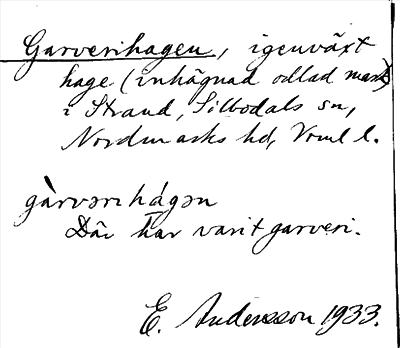 Garverihagen, igenväxt
hage (inhägnad odlad mark)
i Strand, Silbodals sn,
Nordmarks hd, Vrml l.
gàrvərihágən
Där har varit garveri.
E. Andersson 1933.